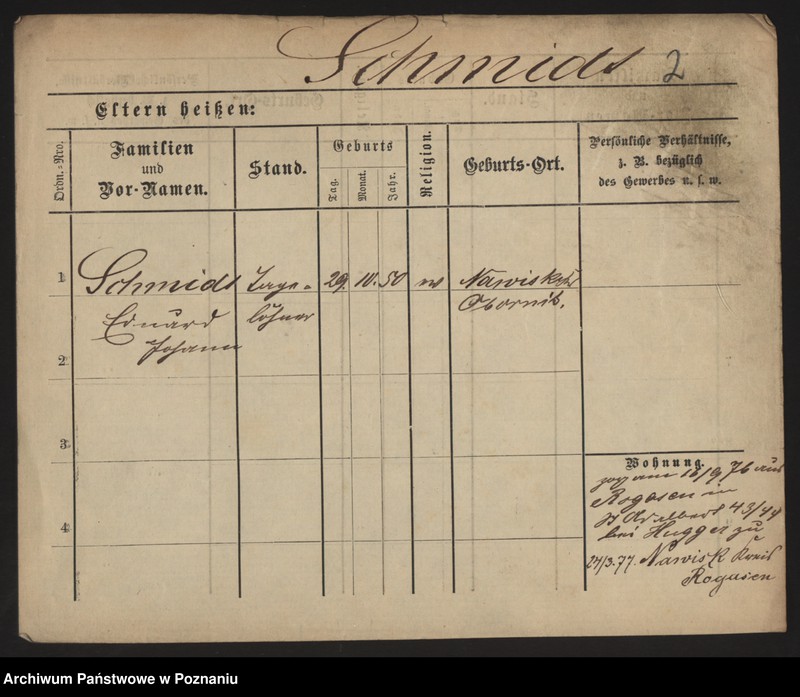 Schmidt 2
Eltern heißen:
Ordn.-Nro.
Familien
und
Vor-Namen.
Stand.
Geburts
Tag.
Monat.
Jahr.
Religion.
Geburts-Ort.
Persönliche Verhältnisse,
z. B. bezüglich
des Gewerbes u. s. w.
1 Schmidt Tage- 29. 10. 50
Eduard löhner Obornik.
Johann
2
3
4
Wohnung.
zog am 16/9 76 aus
Rogasen in
St Adalbert 43/44
bei Hugger zu
24/3. 77. Nawisk Kreis
Rogasen
Archiwum Państwowe w Poznaniu